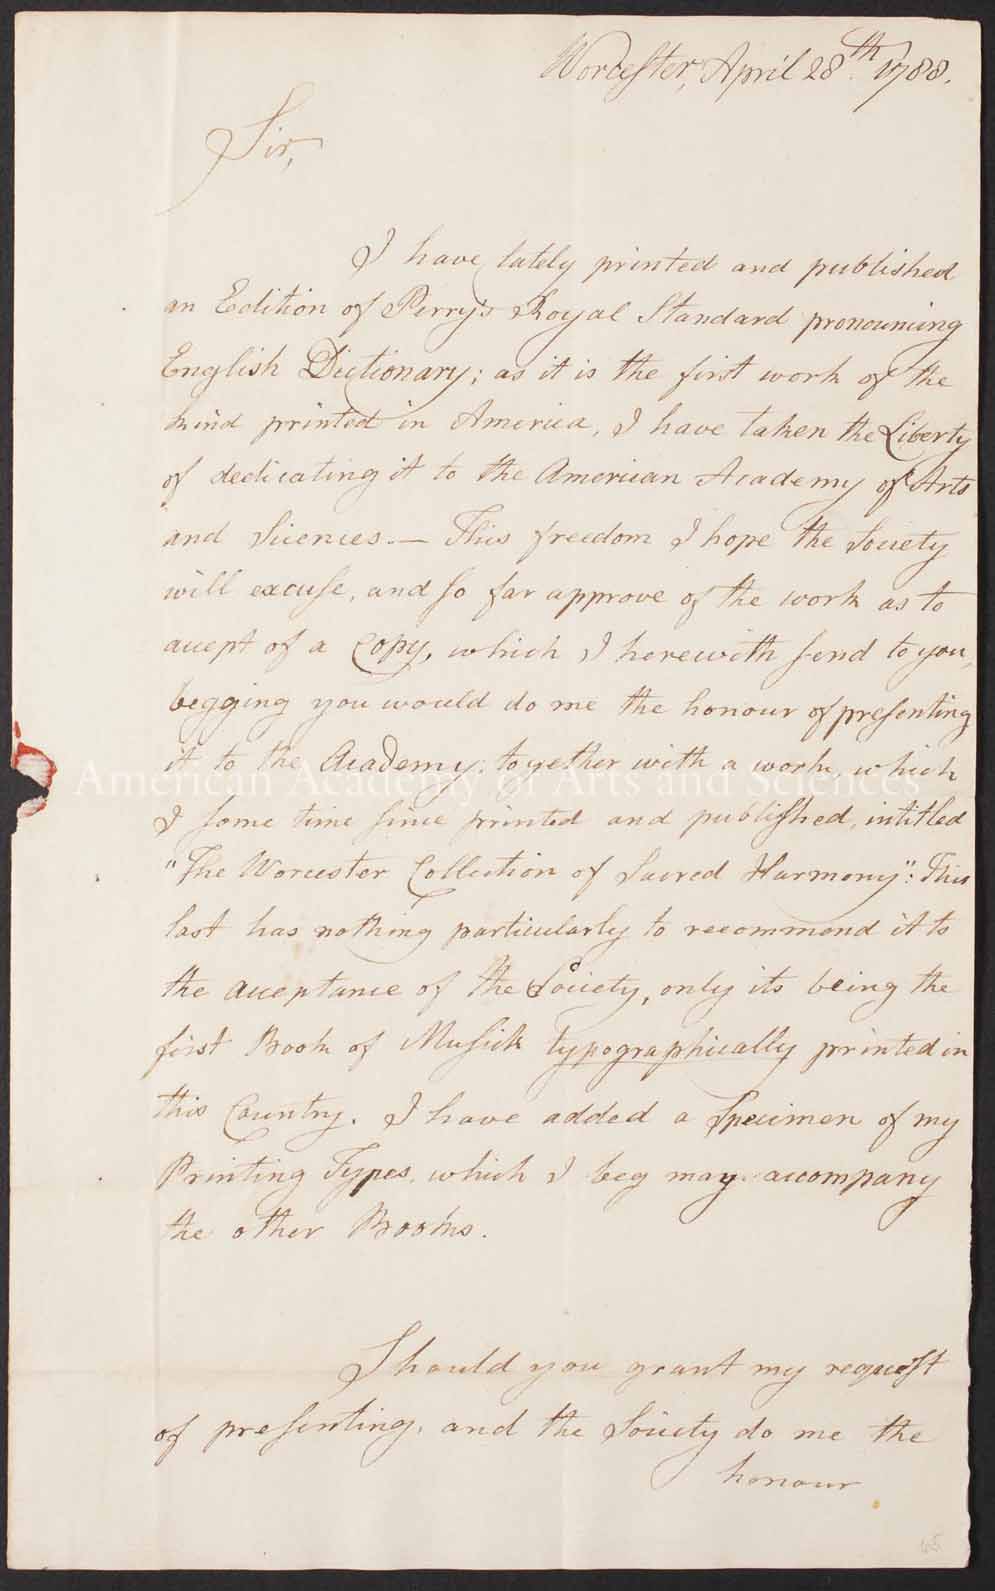 Worcester, April 28th. 1788.
Sir,
I have lately printed and published
an Edition of Perry's Royal Standard pronouncing
English Dictionary; as it is the first work of the
kind printed in America, I have taken the Liberty
of dedicating it to the American Academy of Arts
and Sciences.— This freedom I hope the Society
will excuse, and so far approve of the work as to
accept of a Copy, which I herewith send to you,
begging you would do me the honour of presenting
it to the Academy, together with a work, which
American Academy of Arts and Sciences
I some time since printed and published, intitled
"The Worcester Collection of Sacred Harmony": This
last has nothing particularly to recommend it to
the acceptance of the Society, only its being the
first Book of Musick typographically printed in
this Country. I have added a Specimen of my
Printing Types, which I beg may accompany
the other Books.
Should you grant my request
of presenting, and the Society do me the
honour
45